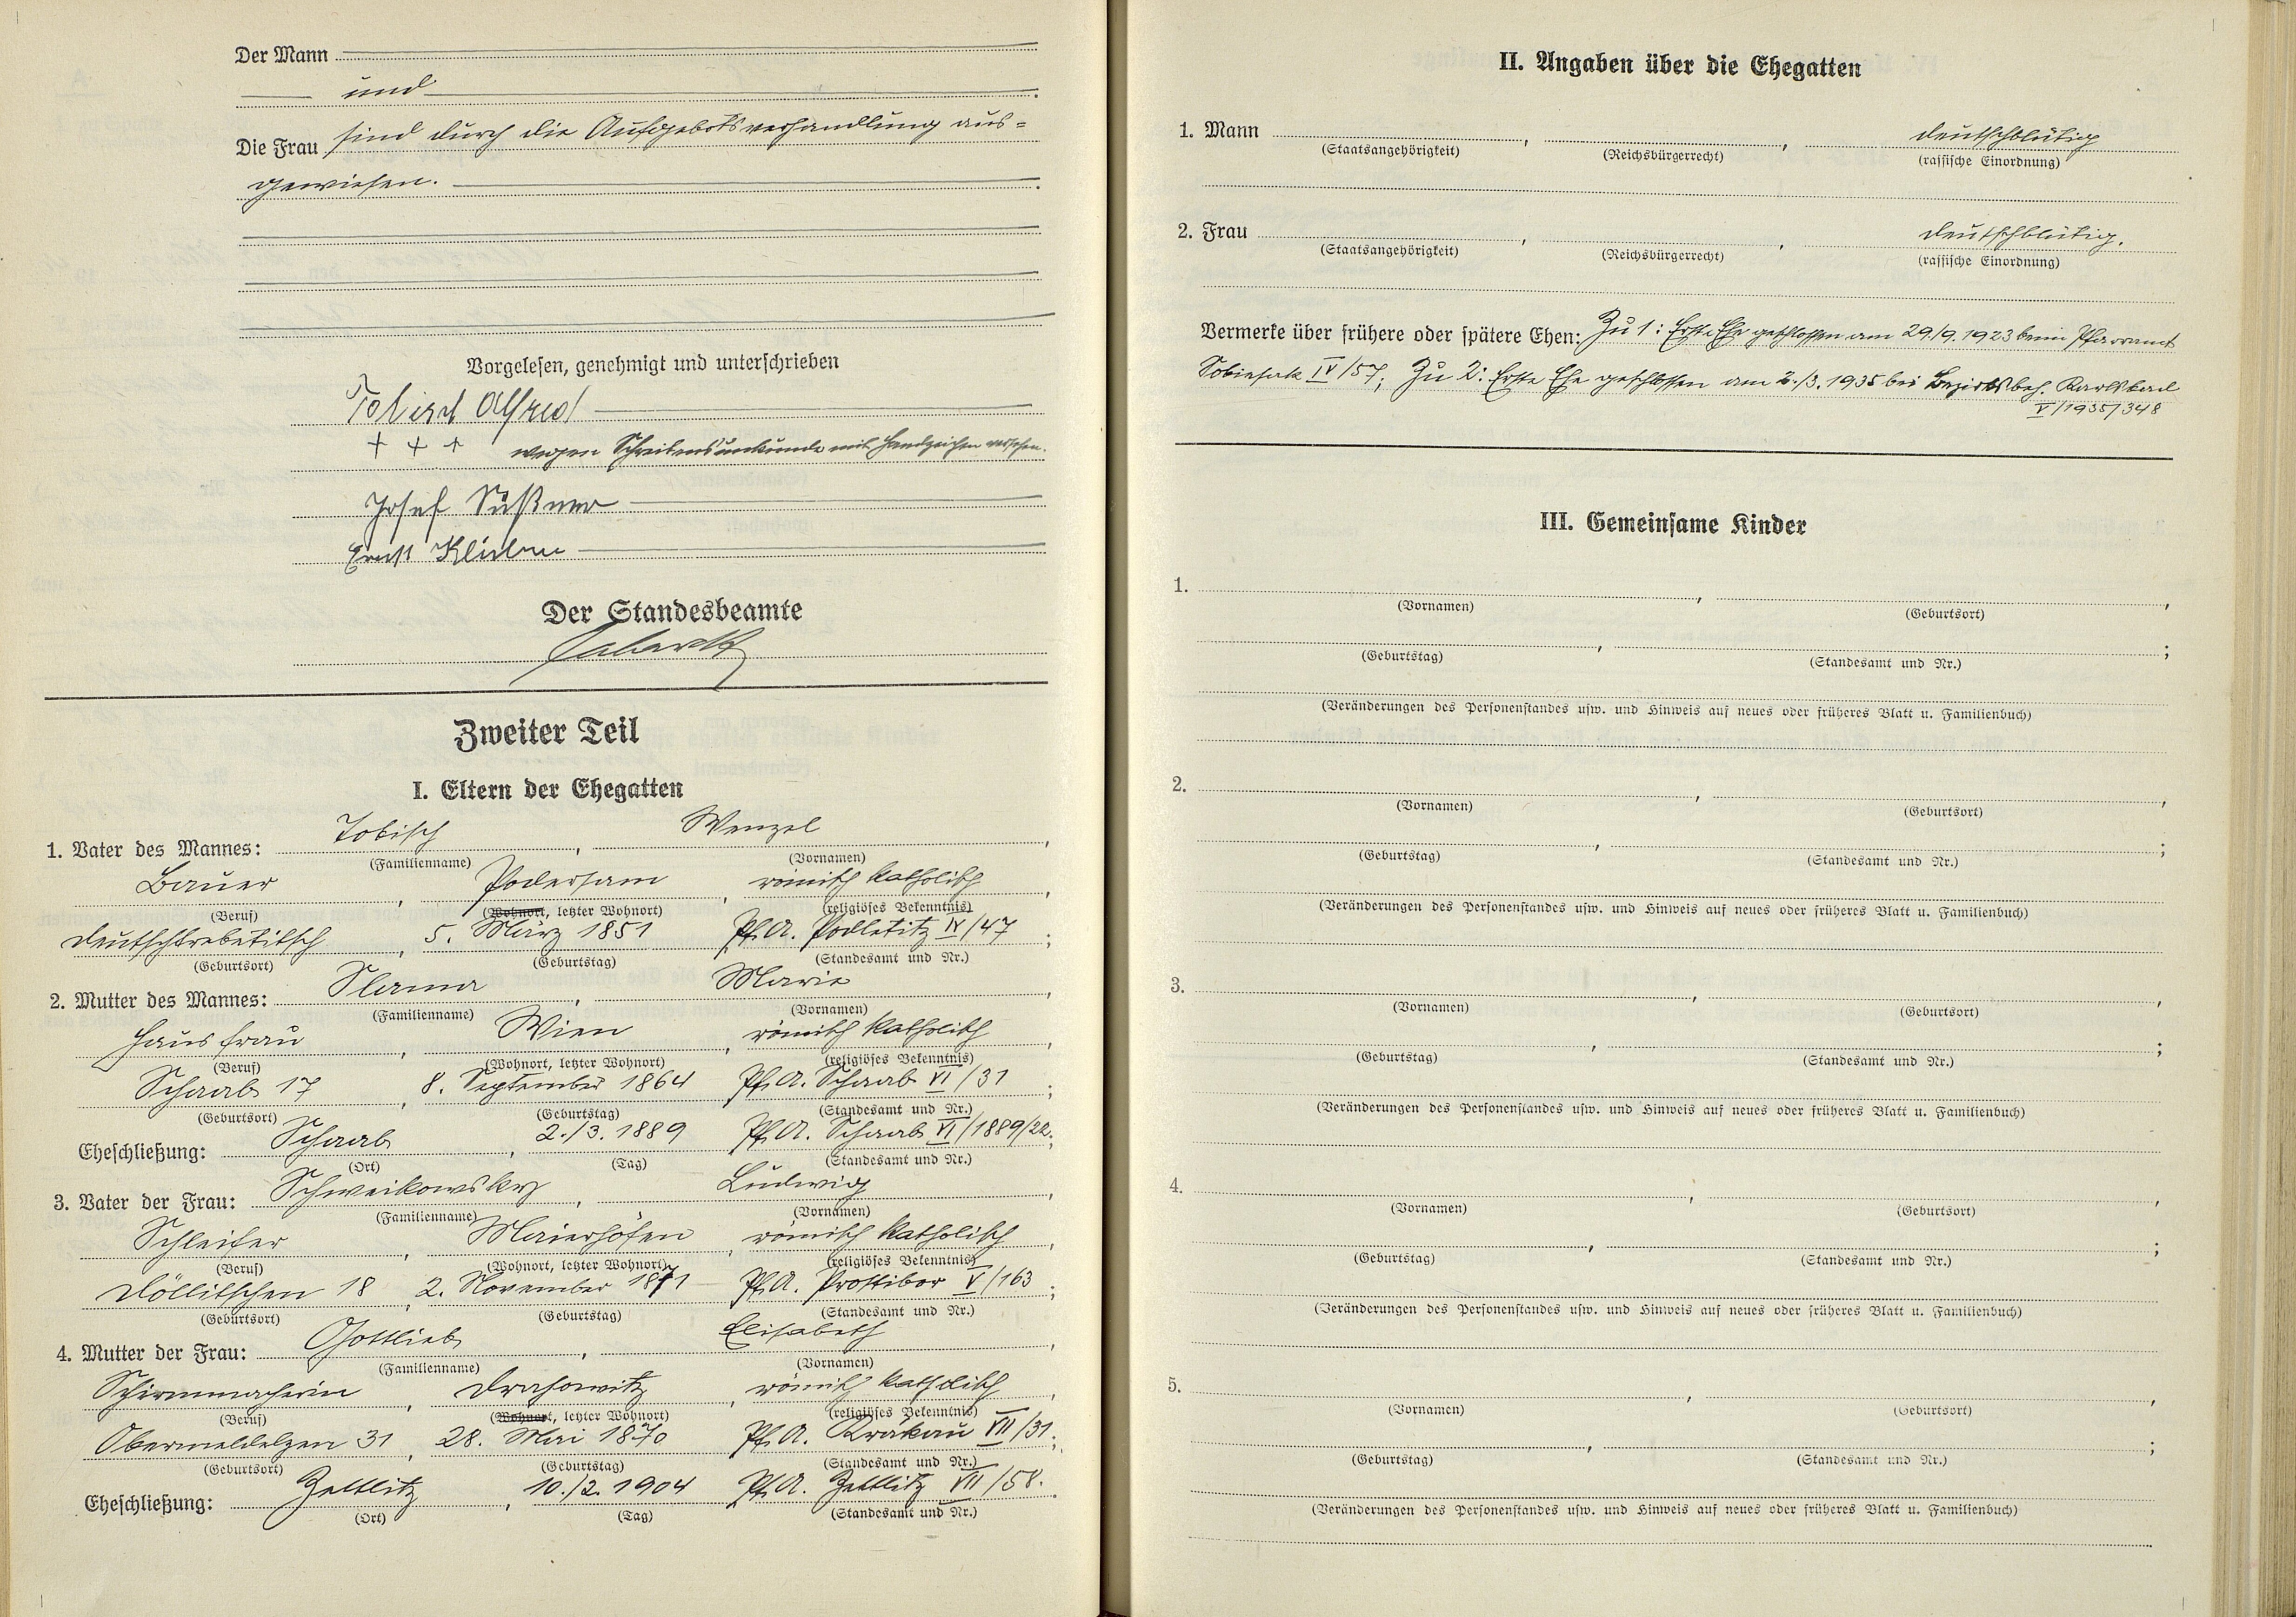 Der Mann
und
Die Frau sind durch die Aufgebotsverhandlung aus=
gewiesen.
Vorgelesen, genehmigt und unterschrieben
Tobisch Alfred
+ + + wegen Schreibensunkunde mit Handzeichen versehen.
Josef Süßner
Ernst
Der Standesbeamte
Zweiter Teil
I. Eltern der Ehegatten
Tobisch Wenzel
1. Vater des Mannes: , ,
(Familienname) (Vornamen)
Bauer , Podersam , römisch katholisch ,
(Beruf) (Wohnort, letzter Wohnort) (religiöses Bekenntnis)
Deutschtrebetitsch , 5. März 1851 Pf.A. Podletitz IV/47 ;
(Geburtsort) (Geburtstag) (Standesamt und Nr.)
2. Mutter des Mannes: Slama , Marie ,
(Familienname) (Vornamen)
Hausfrau , Wien , römisch katholisch ,
(Beruf) (Wohnort, letzter Wohnort) (religiöses Bekenntnis)
Schaab 17 , 8. September 1864 Pf.A. Schaab VI/31 ;
(Geburtsort) (Geburtstag) (Standesamt und Nr.)
Eheschließung: Schaab , 2./3. 1889 Pf.A. Schaab VI/1889/22.;
(Ort) (Tag) (Standesamt und Nr.)
3. Vater der Frau: Schweikowsky , Ludwig ,
(Familienname) (Vornamen)
Schleifer , Maierhöfen , römisch katholisch ,
(Beruf) (Wohnort, letzter Wohnort) (religiöses Bekenntnis)
Döllitschen 18 , 2. November 1871 Pf.A. Prostibor V/163 ;
(Geburtsort) (Geburtstag) (Standesamt und Nr.)
4. Mutter der Frau: Gottlieb , Elisabeth ,
(Familienname) (Vornamen)
Schirmmacherin , Drahowitz , römisch katholisch ,
(Beruf) (Wohnort, letzter Wohnort) (religiöses Bekenntnis)
31 , 28. Mai 1870 Pf.A. Krakau VII/31 ;
(Geburtsort) (Geburtstag) (Standesamt und Nr.)
Eheschließung: Zettlitz , 10./2. 1904 Pf.A. Zettlitz VII/58.
(Ort) (Tag) (Standesamt und Nr.)
II. Angaben über die Ehegatten
1. Mann , , deutschblütig
(Staatsangehörigkeit) (Reichsbürgerrecht) (rassische Einordnung)
2. Frau , , deutschblütig.
(Staatsangehörigkeit) (Reichsbürgerrecht) (rassische Einordnung)
Vermerke über frühere oder spätere Ehen: Zu 1: Erste Ehe geschlossen am 29./9. 1923 beim Pfarramt
Sobiesak IV/57; Zu 2: Erste Ehe geschlossen am 2./3. 1935 bei Bezirksbeh. Karlsbad
V/1935/348
III. Gemeinsame Kinder
1. , ,
(Vornamen) (Geburtsort)
, ;
(Geburtstag) (Standesamt und Nr.)
(Veränderungen des Personenstandes usw. und Hinweis auf neues oder früheres Blatt u. Familienbuch)
2. , ,
(Vornamen) (Geburtsort)
, ;
(Geburtstag) (Standesamt und Nr.)
(Veränderungen des Personenstandes usw. und Hinweis auf neues oder früheres Blatt u. Familienbuch)
3. , ,
(Vornamen) (Geburtsort)
, ;
(Geburtstag) (Standesamt und Nr.)
(Veränderungen des Personenstandes usw. und Hinweis auf neues oder früheres Blatt u. Familienbuch)
4. , ,
(Vornamen) (Geburtsort)
, ;
(Geburtstag) (Standesamt und Nr.)
(Veränderungen des Personenstandes usw. und Hinweis auf neues oder früheres Blatt u. Familienbuch)
5. , ,
(Vornamen) (Geburtsort)
, ;
(Geburtstag) (Standesamt und Nr.)
(Veränderungen des Personenstandes usw. und Hinweis auf neues oder früheres Blatt u. Familienbuch)